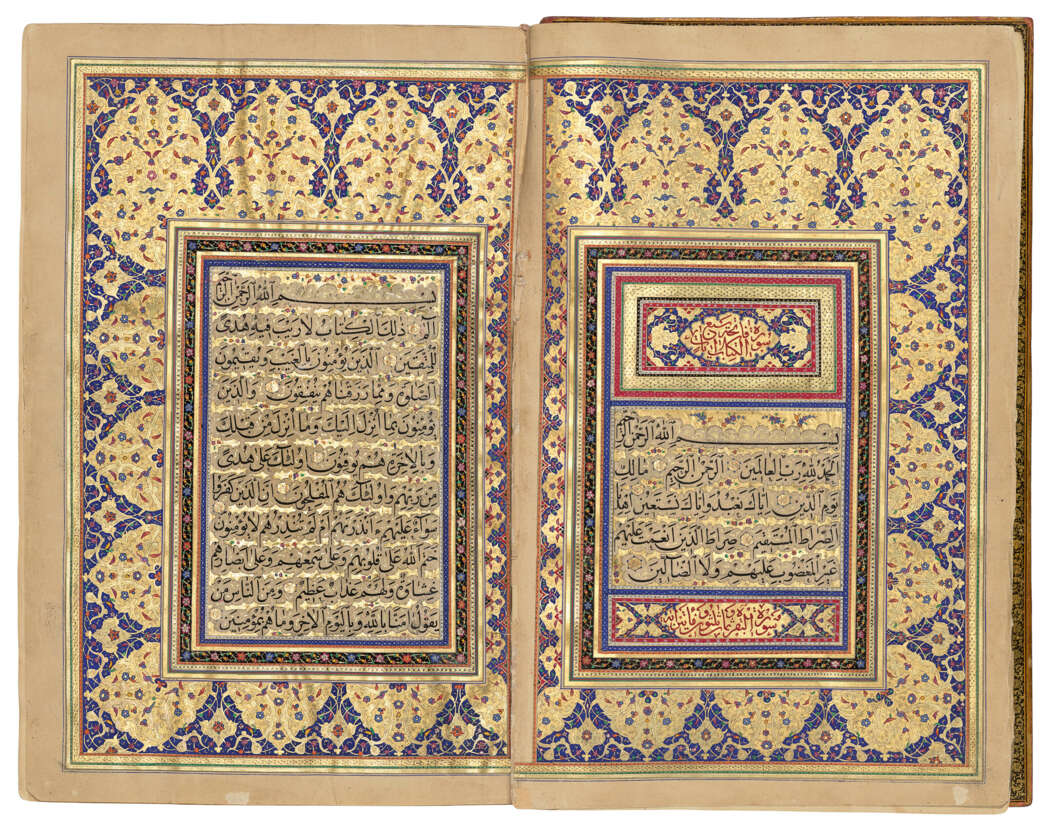 سورة
الكتاب
بسم الله الرحمن الرحيم
الحمد لله رب العالمين الرحمن الرحيم مالك
يوم الدين اياك نعبد واياك نستعين اهدنا
الصراط المستقيم صراط الذين انعمت عليهم
غير المغضوب عليهم ولا الضالين
سورة البقرة
بسم الله الرحمن الرحيم
الم ذلك الكتاب لا ريب فيه هدى
للمتقين الذين يؤمنون بالغيب ويقيمون
الصلوة ومما رزقناهم ينفقون والذين
يؤمنون بما انزل اليك وما انزل من قبلك
وبالاخرة هم يوقنون اولئك على هدى
من ربهم واولئك هم المفلحون ان الذين كفروا
سواء عليهم ءانذرتهم ام لم تنذرهم لا يؤمنون
ختم الله على قلوبهم وعلى سمعهم وعلى ابصارهم
غشاوة ولهم عذاب عظيم ومن الناس من
يقول امنا بالله وباليوم الاخر وما هم بمؤمنين